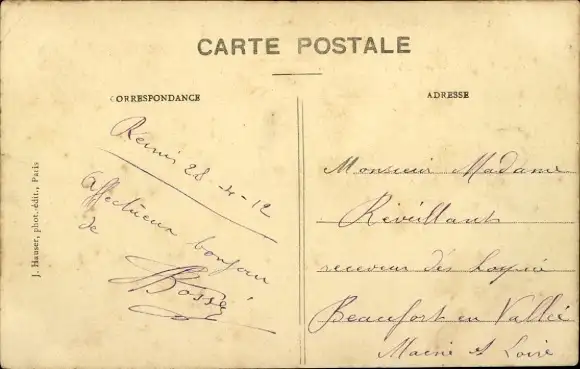 CARTE POSTALE
CORRESPONDANCE
ADRESSE
Reims 28-4-12
Affectueux bonjour
de
Bossé
Monsieur Madame
Réveillant
receveur des
Beaufort en Vallée
Maine et Loire
J. Hauser, phot.-édit., Paris